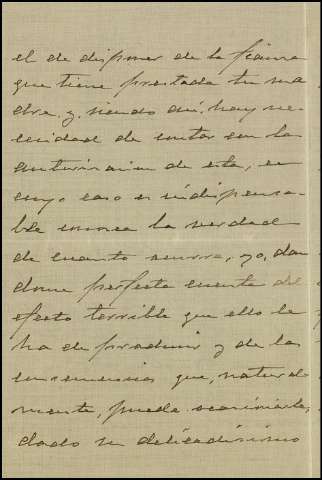 el de disponer de la fianza
que tiene prestada tu ma
dre y, siendo así, hay ne
cesidad de contar con la
autorización de esta, en
cuyo caso es indispensa-
ble conozca la verdad
de cuanto ocurre, yo, dan
dome perfecta cuenta del
efecto terrible que ello le
ha de producir y de las
consecuencias que, natural
mente, pueda ocasionarle,
dado su delicadísimo